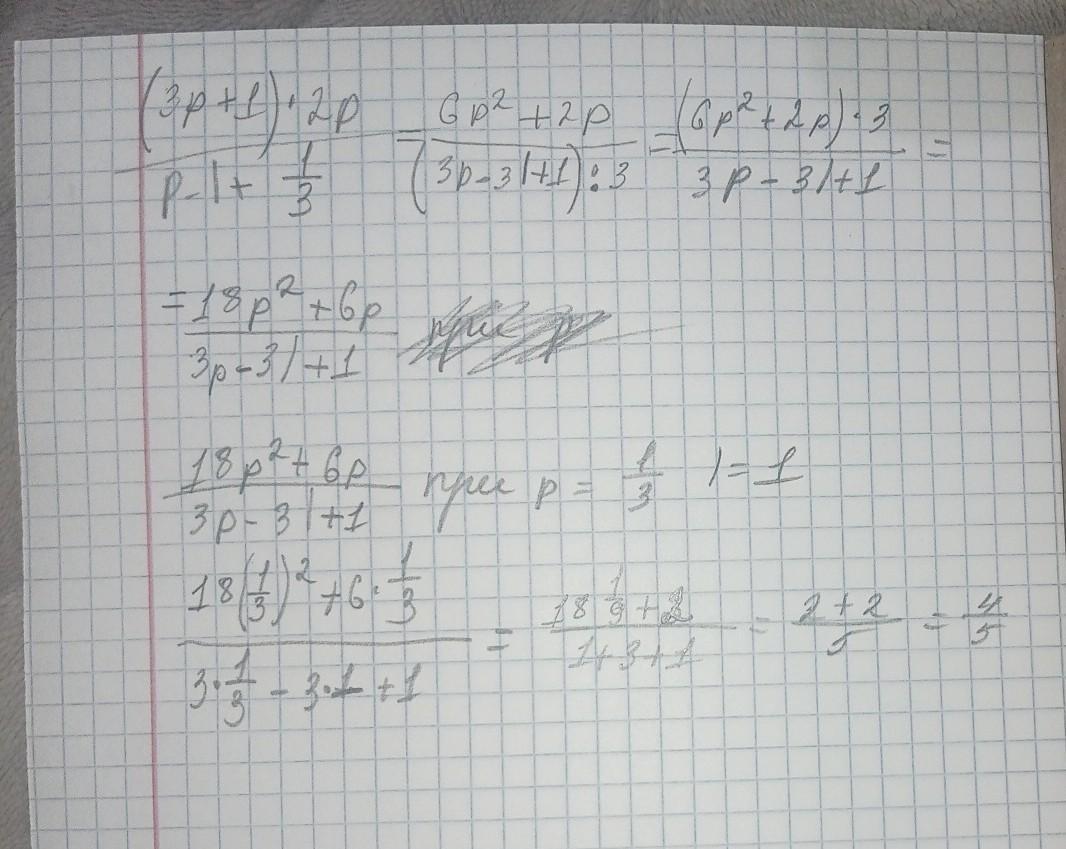 (3p+1)·2p / p-l+1/3 = 6p²+2p / (3p-3l+1):3 = (6p²+2p)·3 / 3p-3l+1 =
= 18p²+6p / 3p-3l+1
18p²+6p / 3p-3l+1 при p = 1/3 l=1
18(1/3)²+6·1/3 / 3·1/3-3·1+1 = 18 1/9+2 / 1+3+1 = 2+2 / 5 = 4/5